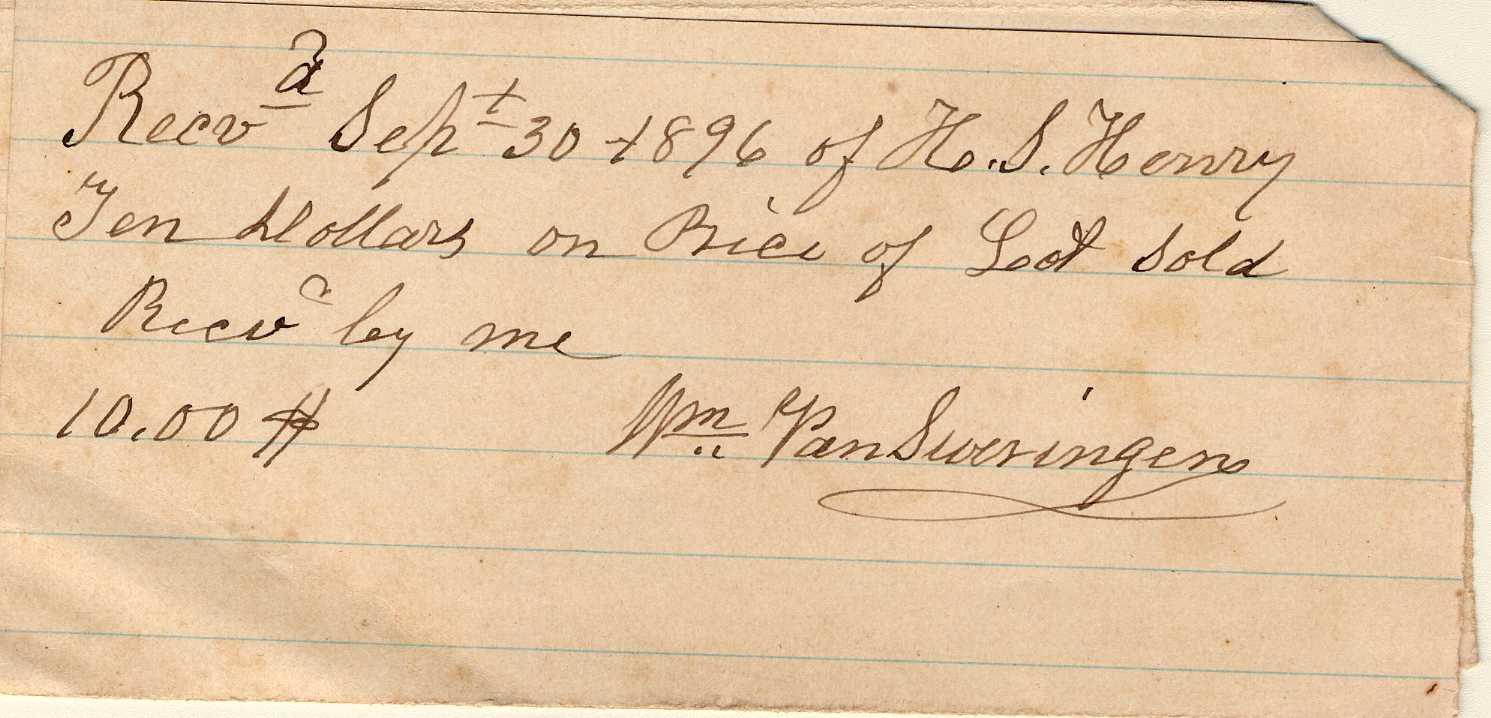 Recvd Sept 30 1896 of H. S. Henry
Ten Dollars on Price of Lot sold
Recvd by me
10.00 $ Wm VanSweringen